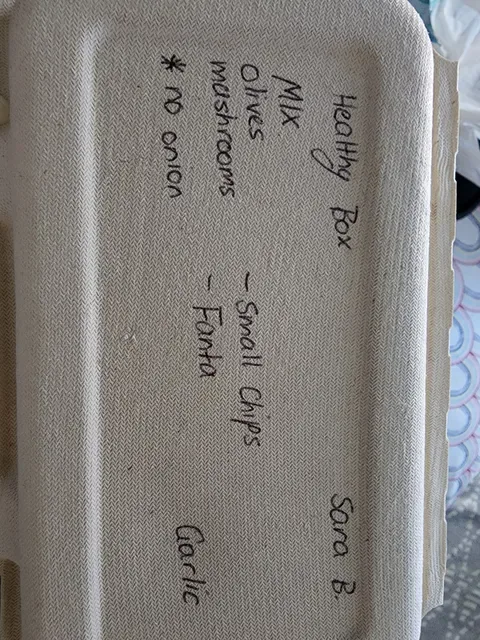 Healthy Box
Sara B.
Mix
olives
mashrooms
* no onion
- Small Chips
- Fanta
Garlic